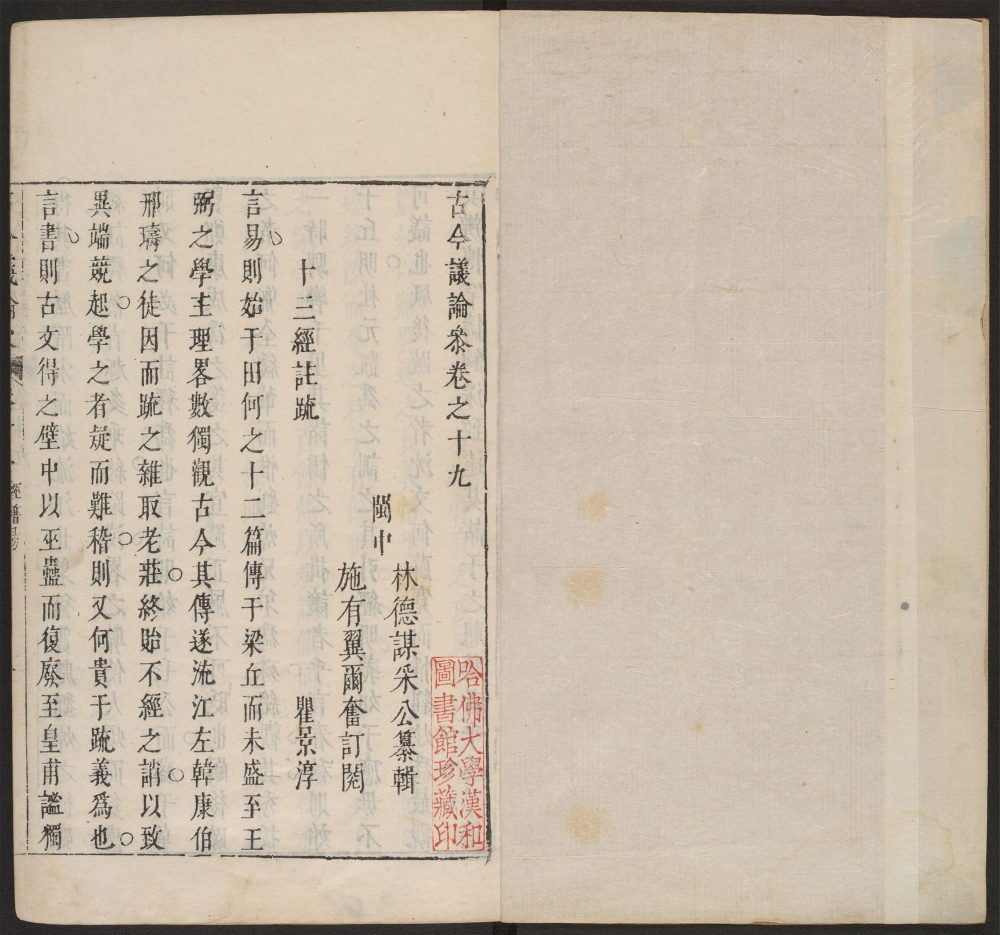 古今議論叅卷之十九
閩中
林德謀采公纂輯
施有翼爾奮訂閱
十三經註䟽
瞿景淳
言易則始于田何之十二篇傳于梁丘而未盛至王
弼之學主理畧數獨觀古今其傳遂流江左韓康伯
邢璹之徒因而䟽之雜取老莊終貽不經之誚以致
異端競起學之者疑而難稽則又何貴于䟽義爲也
言書則古文得之壁中以巫蠱而復廢至皇甫謐獨
哈佛大學漢和
圖書館珍藏印